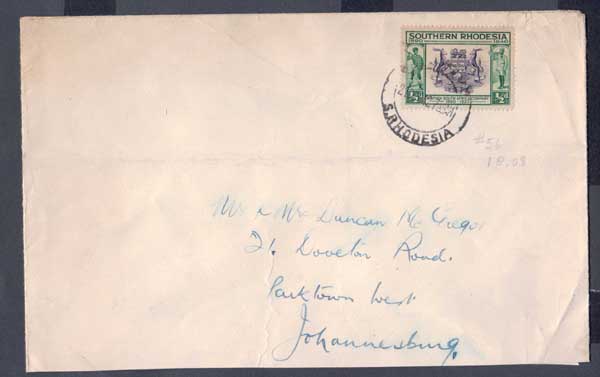 SOUTHERN RHODESIA
1890 1940
½D ½D
S.RHODESIA
#56
18.08
Mr & Mrs Duncan McGregor
21. Doveton Road.
Parktown West
Johannesburg.